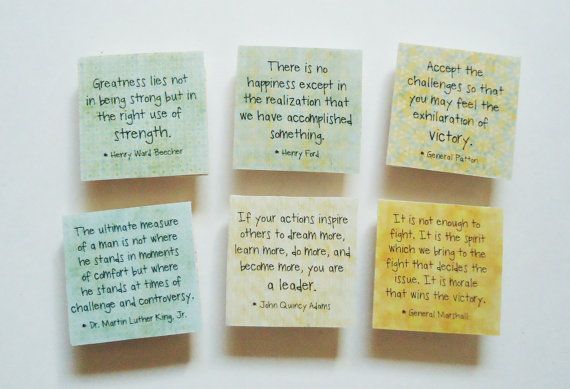 Greatness lies not
in being strong but in
the right use of
strength.
* Henry Ward Beecher
There is no
happiness except in
the realization that
we have accomplished
something.
* Henry Ford
Accept the
challenges so that
you may feel the
exhilaration of
victory.
* General Patton
The ultimate measure
of a man is not where
he stands in moments
of comfort but where
he stands at times of
challenge and controversy.
* Dr. Martin Luther King, Jr.
If your actions inspire
others to dream more,
learn more, do more, and
become more, you are
a leader.
* John Quincy Adams
It is not enough to
fight. It is the spirit
which we bring to the
fight that decides the
issue. It is morale
that wins the victory.
* General Marshall